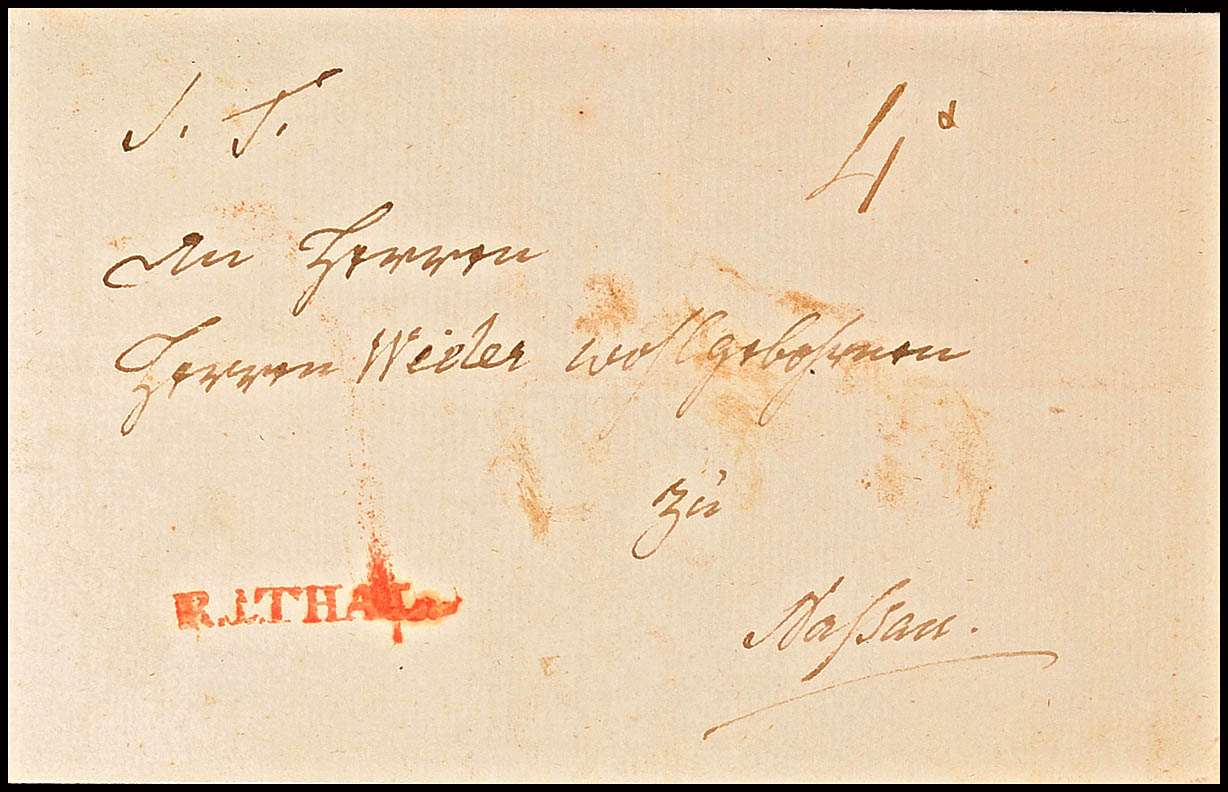 S. T.
4
An Herren
Herren Weider wohlgebohrnen
zu
Nassau.
R.I.THAL